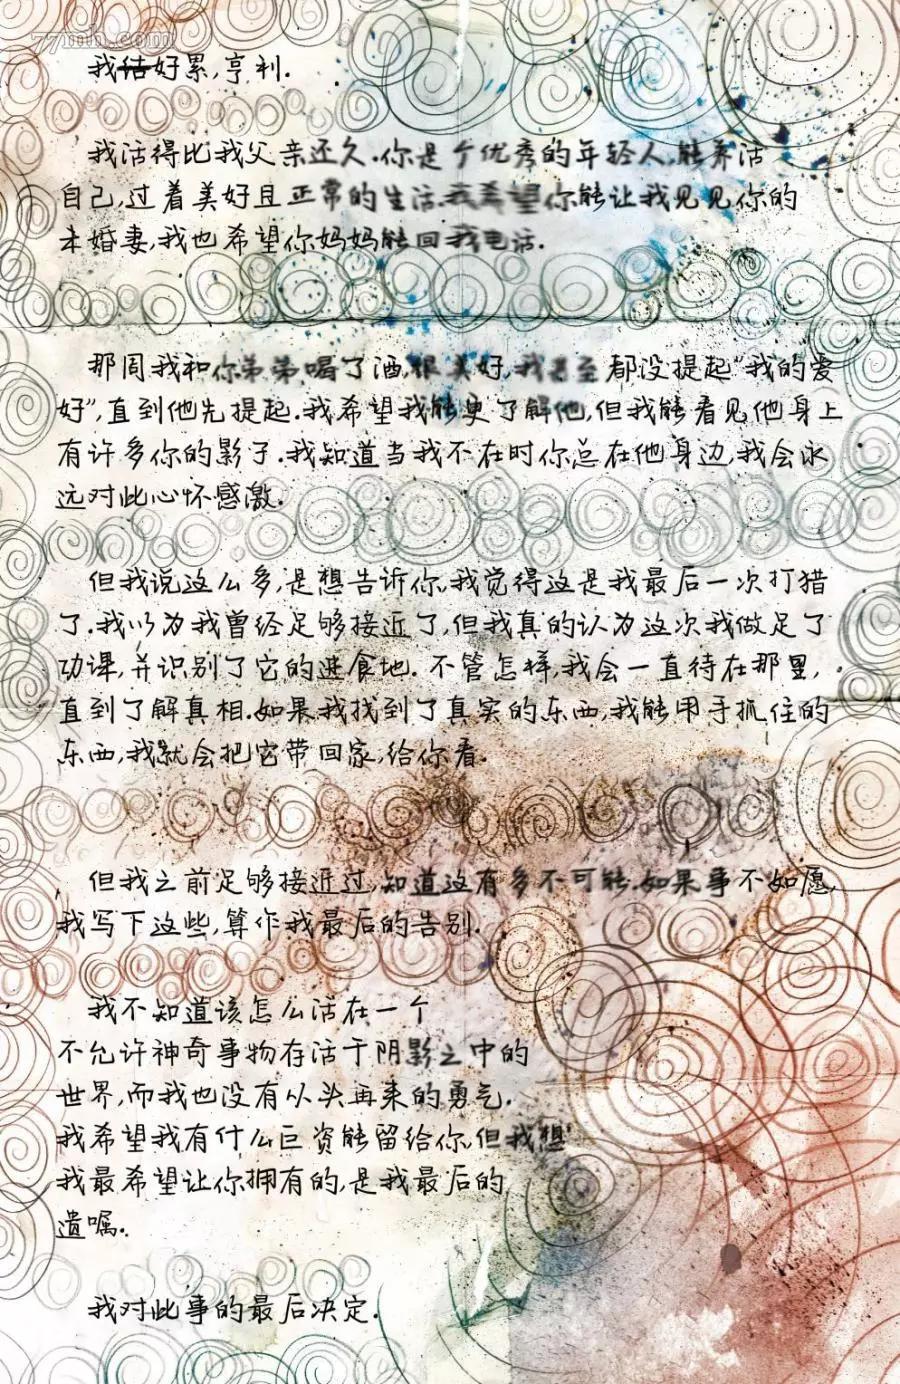 77mh.com
我好累,亨利.
我活得比我父亲还久.你是个优秀的年轻人,能养活
自己,过着美好且正常的生活.我希望你能让我见见你的
未婚妻,我也希望你妈妈能回我电话.
那周我和你弟弟喝了酒,很美好,我甚至都没提起“我的爱
好”,直到他先提起.我希望我能更了解他,但我能看见他身上
有许多你的影子.我知道当我不在时你总在他身边,我会永
远对此心怀感激.
但我说这么多,是想告诉你,我觉得这是我最后一次打猎
了.我以为我曾经足够接近了,但我真的认为这次我做足了
功课,并识别了它的进食地.不管怎样,我会一直待在那里,
直到了解真相.如果我找到了真实的东西,我能用手抓住的
东西,我就会把它带回家,给你看.
但我之前足够接近过,知道这有多不可能.如果事不如愿,
我写下这些,算作我最后的告别.
我不知道该怎么活在一个
不允许神奇事物存活于阴影之中的
世界,而我也没有从头再来的勇气.
我希望我有什么巨资能留给你,但我想
我最希望让你拥有的,是我最后的
遗嘱.
我对此事的最后决定.